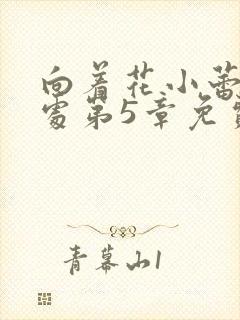 向着花小蕾
处第5章免费
青幕山1